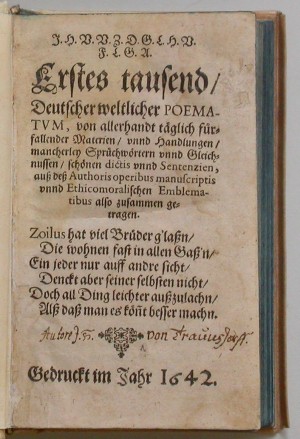 J. H. V. V. Z. D. G. L. H. V.
F. L. G. A.
Erstes tausend/
Deutscher weltlicher POEMA-
TVM, von allerhandt täglich für-
fallender Materien/ vnnd Handlungen/
mancherley Sprüchwörtern vnnd Gleich-
nussen/ schönen dictis vnnd Sentenzien,
auß deß Authoris operibus manuscriptis
vnnd Ethicomoralischen Emblema-
tibus also zusammen ge-
tragen.
Zoilus hat viel Brüder g'laßn/
Die wohnen fast in allen Gaß'n/
Ein jeder nur auff andre sicht/
Denckt aber seiner selbsten nicht/
Doch all Ding leichter außzulachn/
Alß daß man es könt besser machn.
Autore J. H. von Traunstorff.
Gedruckt im Jahr 1642.